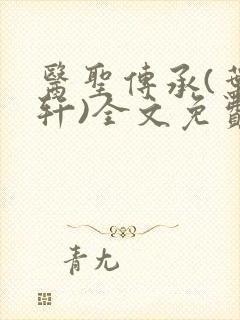 醫聖傳承(葉
軒)全文免費
青尢